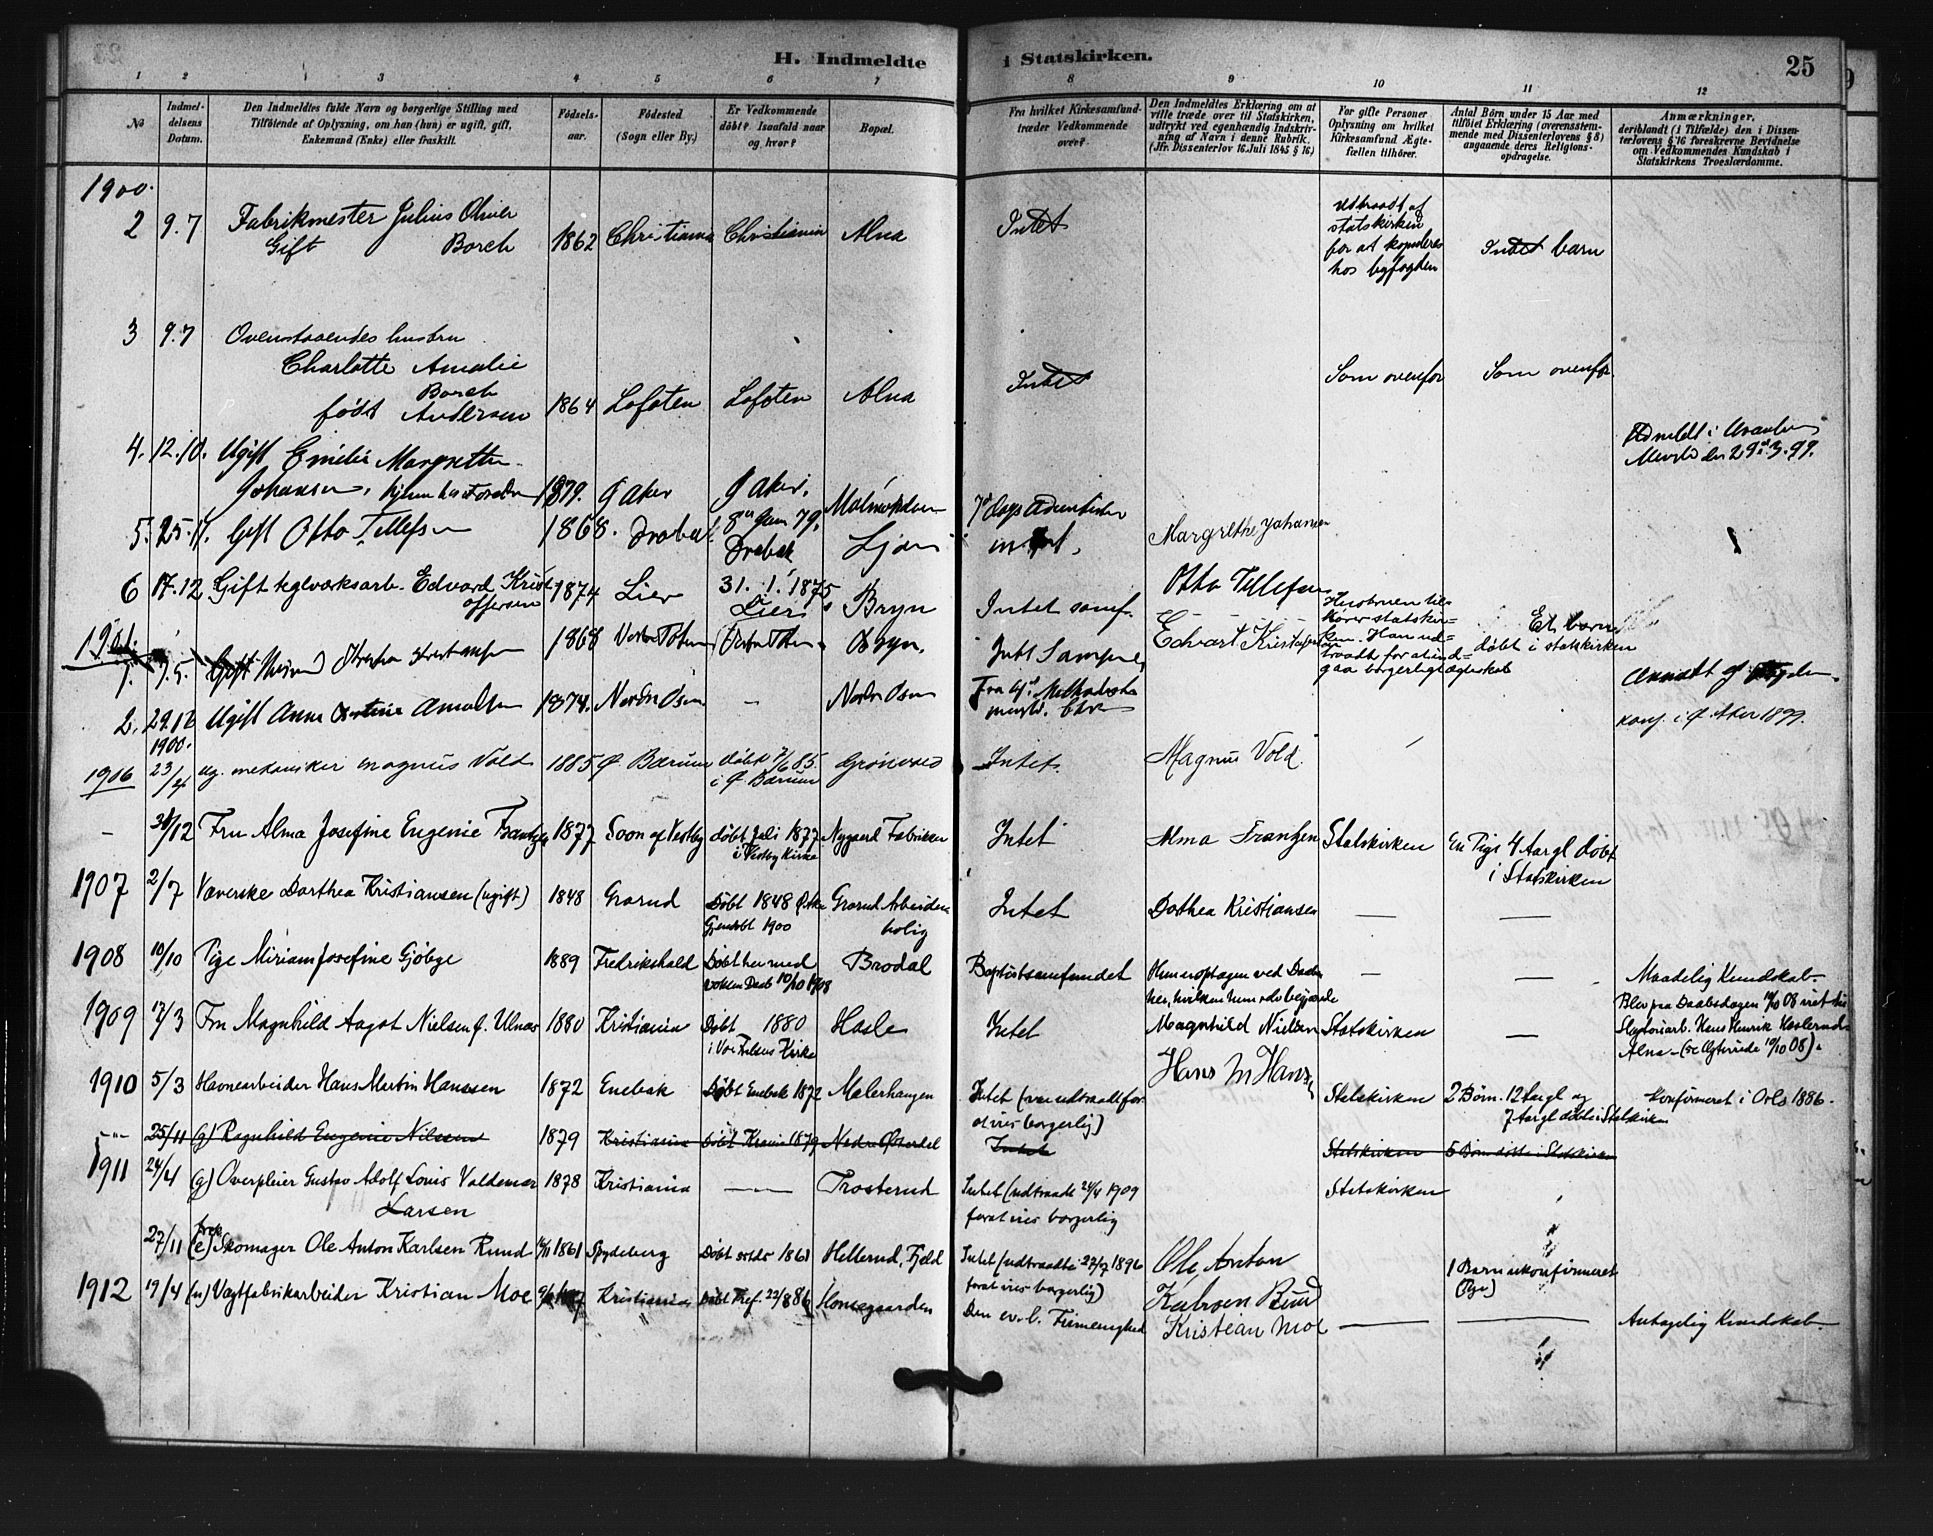 H. Indmeldte i Statskirken.
25
1 2 3 4 5 6 7 8 9 10 11 12
No
Indmel-
delsens
Datum.
Den Indmeldtes fulde Navn og borgerlige Stilling med
Tilføiende af Oplysning, om han (hun) er ugift, gift,
Enkemand (Enke) eller fraskilt.
Fødsels-
aar.
Fødested
(Sogn eller By.)
Er Vedkommende
døbt? Isaafald naar
og hvor?
Bopæl.
Fra hvilket Kirkesamfund-
træder Vedkommende
over?
Den Indmeldtes Erklæring om at
ville træde over til Statskirken,
udtrykt ved egenhændig Indskriv-
ning af Navn i denne Rubrik.
(Jfr. Dissenterlov 16. Juli 1845 § 16.)
For gifte Personer
Oplysning om hvilket
Kirkesamfund Ægte-
fællen tilhører.
Antal Børn under 15 Aar med
tilføiet Erklæring (overensstem-
mende med Dissenterlovens § 8)
angaaende deres Religions-
opdragelse.
Anmærkninger,
deriblandt (i Tilfælde) den i Dissen-
terlovens § 16 foreskrevne Bevidnelse
om Vedkommendes Kundskab i
Statskirkens Troeslærdomme.
1900.
2 9.7 Fabrikmester Julius Oliver
Gift Borch 1862 Christiania Christiania Alna Intet
udtraadt af
statskirken
for at kopuleres
hos byfogden
Intet barn
3 9.7 Ovenstaaendes hustru
Charlotte Amalie
Borch
født Andersen 1864 Lofoten Lofoten Alna Intet Som ovenfor Som ovenfor
4. 12.10. Ugift Emilie Margrethe
Johansen, hjemme hos Foreldre 1879. Ø Aker Ø Aker.
7d dags Adventister
Margrethe Johansen
29.3.99.
5. 25.11. Gift Otto Tellefsen 1868. Drøbak 8 Jan 79. Drøbak Ljan intet.
Otto Tellefsen
6 17.12 Gift teglverksarb. Edvard Krist-
offersen 1874 Lier 31.1.1875
Lier Bryn Intet samf.
Edvart Kristofersen
Hustruen til-
hører statskir-
ken. Han ud-
traadt for at ind-
gaa borgerligt ægteskab
Et barn
døbt i statskirken
1901.
1. 9.5. Gift 1868 Vestre Toten Vestre Toten Bryn.
2. 29.12 Ugift Anna Amalie 1874. Nordre Osen — Nordre Osen
Fra 4d Methodist
menigh.
konf. i Ø Aker 1899.
1900.
1906 23/4 ug. mekaniker Magnus Vold 1885 Ø. Bærum døbt 7/6 85.
i Ø. Bærum Grønvold Intet. Magnus Vold
— 31/12 Fru Alma Josefine Eugenie Frantzen 1877 Soon af Vestby døbt Juli 1877
i Vestby Kirke Nygaard Fabrikker Intet Alma Frantzen Statskirken En Pige 4 Aar gl døbt
i Statskirken
1907 2/7 Væverske Dorthea Kristiansen (ugift) 1848 Grorud Døbt 1848 Ø. Aker
Gjendøbt 1900 Grorud Arbeider
bolig Intet Dorthea Kristiansen — —
1908 10/10 Pige Miriam Josefine Gjøbye 1889 Fredrikshald Døbt her med
voksen Daab 10/10 1908 Brodal Baptistsamfundet Hun er optagen ved Daaben
her, hvilken hun selv begjærede — — Maadelig Kundskab.
Blev paa Daabsdagen 10/10 08 viet til
Hans Henrik Haslerud
Alna — (se Ægteviede 10/10 08).
1909 17/3 Fru Magnhild Aagot Nielsen f. Ulnæs 1880 Kristiania Døbt 1880
i Vor Frelsers Kirke Hasle Intet Magnhild Nielsen Statskirken —
1910 5/3 Havnearbeider Hans Martin Hanssen 1872 Enebak Døbt Enebak 1872 Malerhaugen
Intet (var udtraadt for
at vies borgerlig)
Hans M Hansen
Statskirken 2 Børn. 12 Aar gl og
7 Aar gl døbte i Statskirken
Konfirmeret i Oslo 1886.
—"— 25/11 (g) Ragnhild Eugenie Nilssen 1879 Kristiania Døbt Krania 1879 Nedre Østerdal Intet Statskirken 5 Børn døbte i Statskirken
1911 24/4 (g) Overpleier Gustav Adolf Louis Valdemar
Larsen 1878 Kristiania — Trosterud Intet (udtraadt 24/4 1909
for at vies borgerlig Statskirken
27/11 (e) Skomager Ole Anton Karlsen Ruud 1861 Spydeberg Døbt 1861 Hellerud, Fjeld
Intet (udtraadte 22/7 1896
for at vies borgerlig)
Ole Anton
Karlsen Ruud
1 Barn ukonfirmeret
(Pige)
1912 19/4 (u) Vægtfabrikarbeider Kristian Moe Kristiania Døbt Tref. 22/8 86 Homsgaarden
Den ev. l. Frimenighed Kristian Moe — — Antagelig Kundskab.